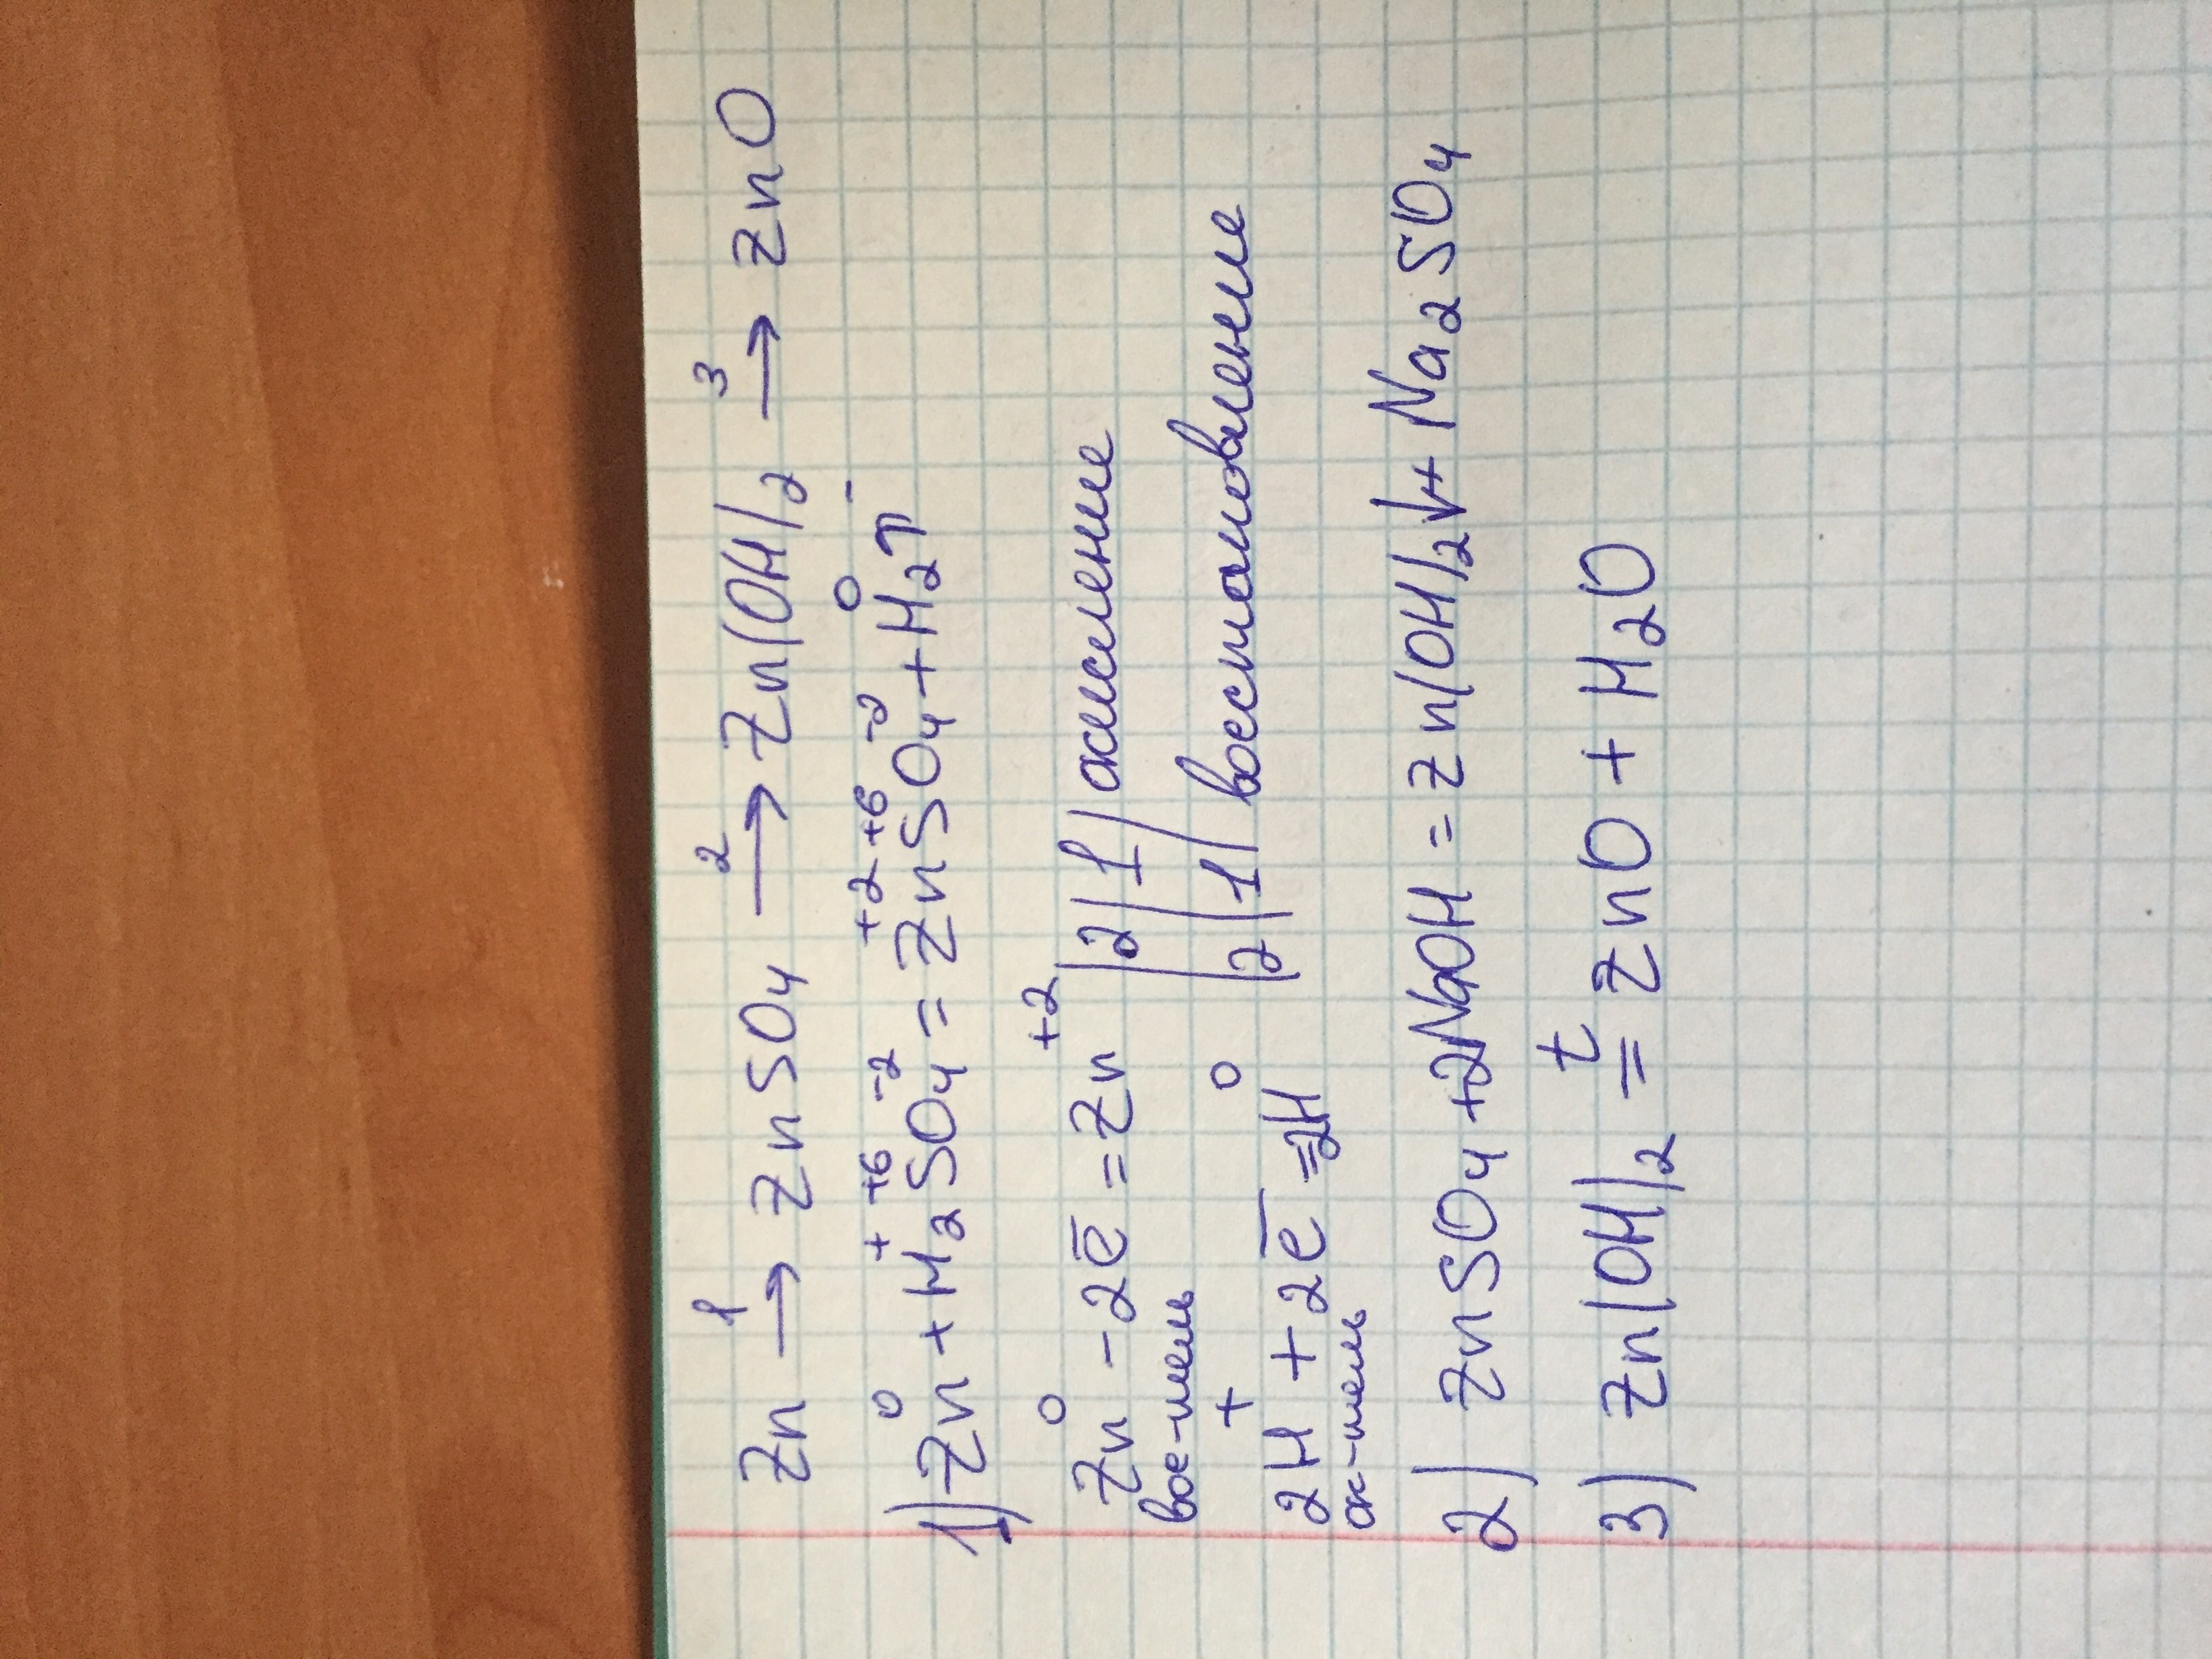 Zn →¹ ZnSO₄ →² Zn(OH)₂ →³ ZnO
1) Zn⁰ + H₂⁺S⁺⁶O₄⁻² = Zn⁺²S⁺⁶O₄⁻² + H₂⁰↑
Zn⁰ - 2ē = Zn⁺² |2|1| окисление
вос-тель
2H⁺ + 2ē = 2H⁰ |2|1| восстановление
ок-тель
2) ZnSO₄ + 2NaOH = Zn(OH)₂↓ + Na₂SO₄
3) Zn(OH)₂ =ᵗ ZnO + H₂O